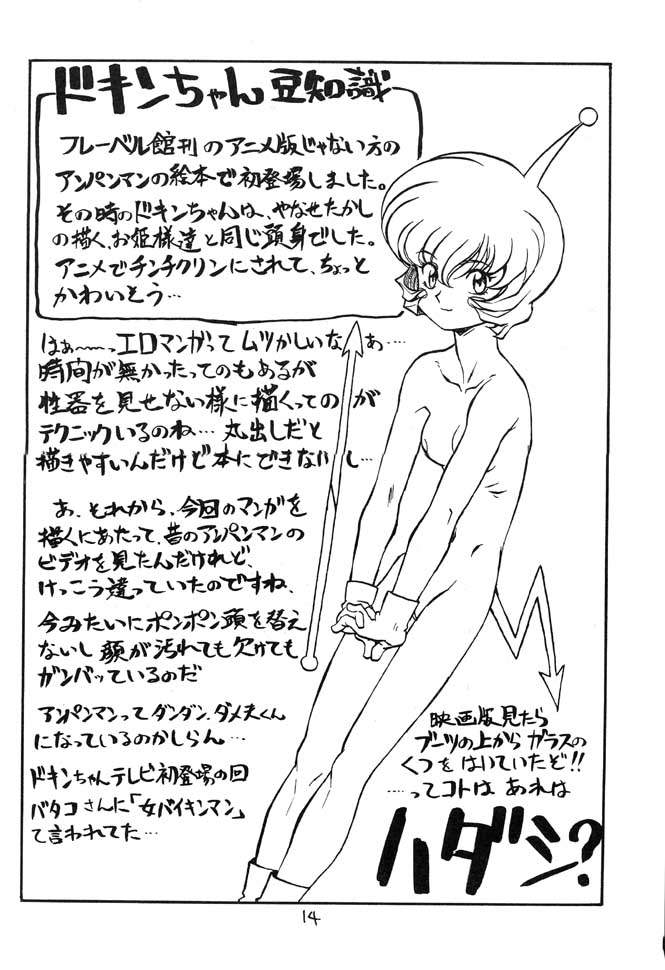 ドキンちゃん 豆知識
フレーベル館刊のアニメ版じゃない方の
アンパンマンの絵本で初登場しました。
その時のドキンちゃんは、やなせたかし
の描く、お姫様達と同じ頭身でした。
アニメでチンチクリンにされて、ちょっと
かわいそう…
はぁ〜〜っエロマンガってムツかしいなぁ…
時間が無かったってのもあるが
性器を見せない様に描くってのが
テクニックいるのね…丸出しだと
描きやすいんだけど本にできないし…
あ、それから、今回のマンガを
描くにあたって、昔のアンパンマンの
ビデオを見たんだけれど、
けっこう違っていたのですね、
今みたいにポンポン頭を替え
ないし 顔が汚れても欠けても
ガンバッているのだ
アンパンマンってダンダン、ダメ夫くん
になっているのかしらん…
ドキンちゃんテレビ初登場の回
バタコさんに「女バイキンマン」
て言われてた…
映画版見たら
ブーツの上から ガラスの
くつを はいていたぞ!!
…ってコトは あれは
ハダシ?
14